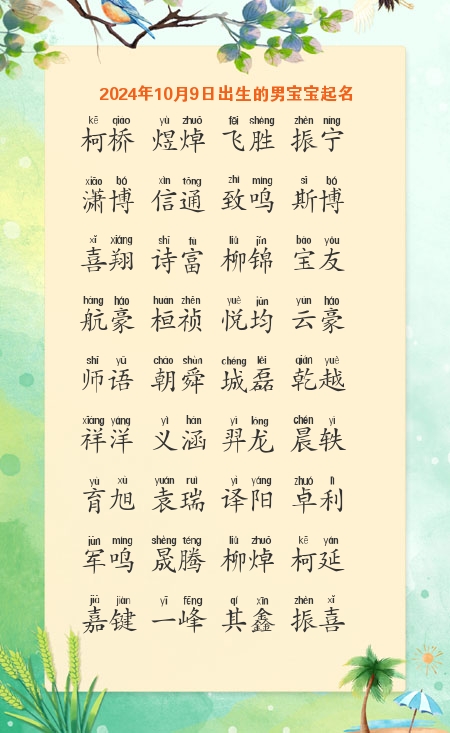 2024年10月9日出生的男宝宝起名
kē qiáo yù zhuō fēi shèng zhèn níng
柯桥 煜焯 飞胜 振宁
xiāo bó xìn tōng zhì míng sī bó
潇博 信通 致鸣 斯博
xǐ xiáng shī fù liǔ jǐn bǎo yǒu
喜翔 诗富 柳锦 宝友
háng háo huán zhēn yuè jūn yún háo
航豪 桓祯 悦均 云豪
shī yǔ cháo shùn chéng lěi qián yuè
师语 朝舜 城磊 乾越
xiáng yáng yì hán yì lóng chén yì
祥洋 义涵 羿龙 晨轶
yù xù yuán ruì yì yáng zhuó lì
育旭 袁瑞 译阳 卓利
jūn míng shèng téng liǔ zhuō kē yán
军鸣 晟腾 柳焯 柯延
jiā jiàn yī fēng qí xīn zhèn xǐ
嘉键 一峰 其鑫 振喜